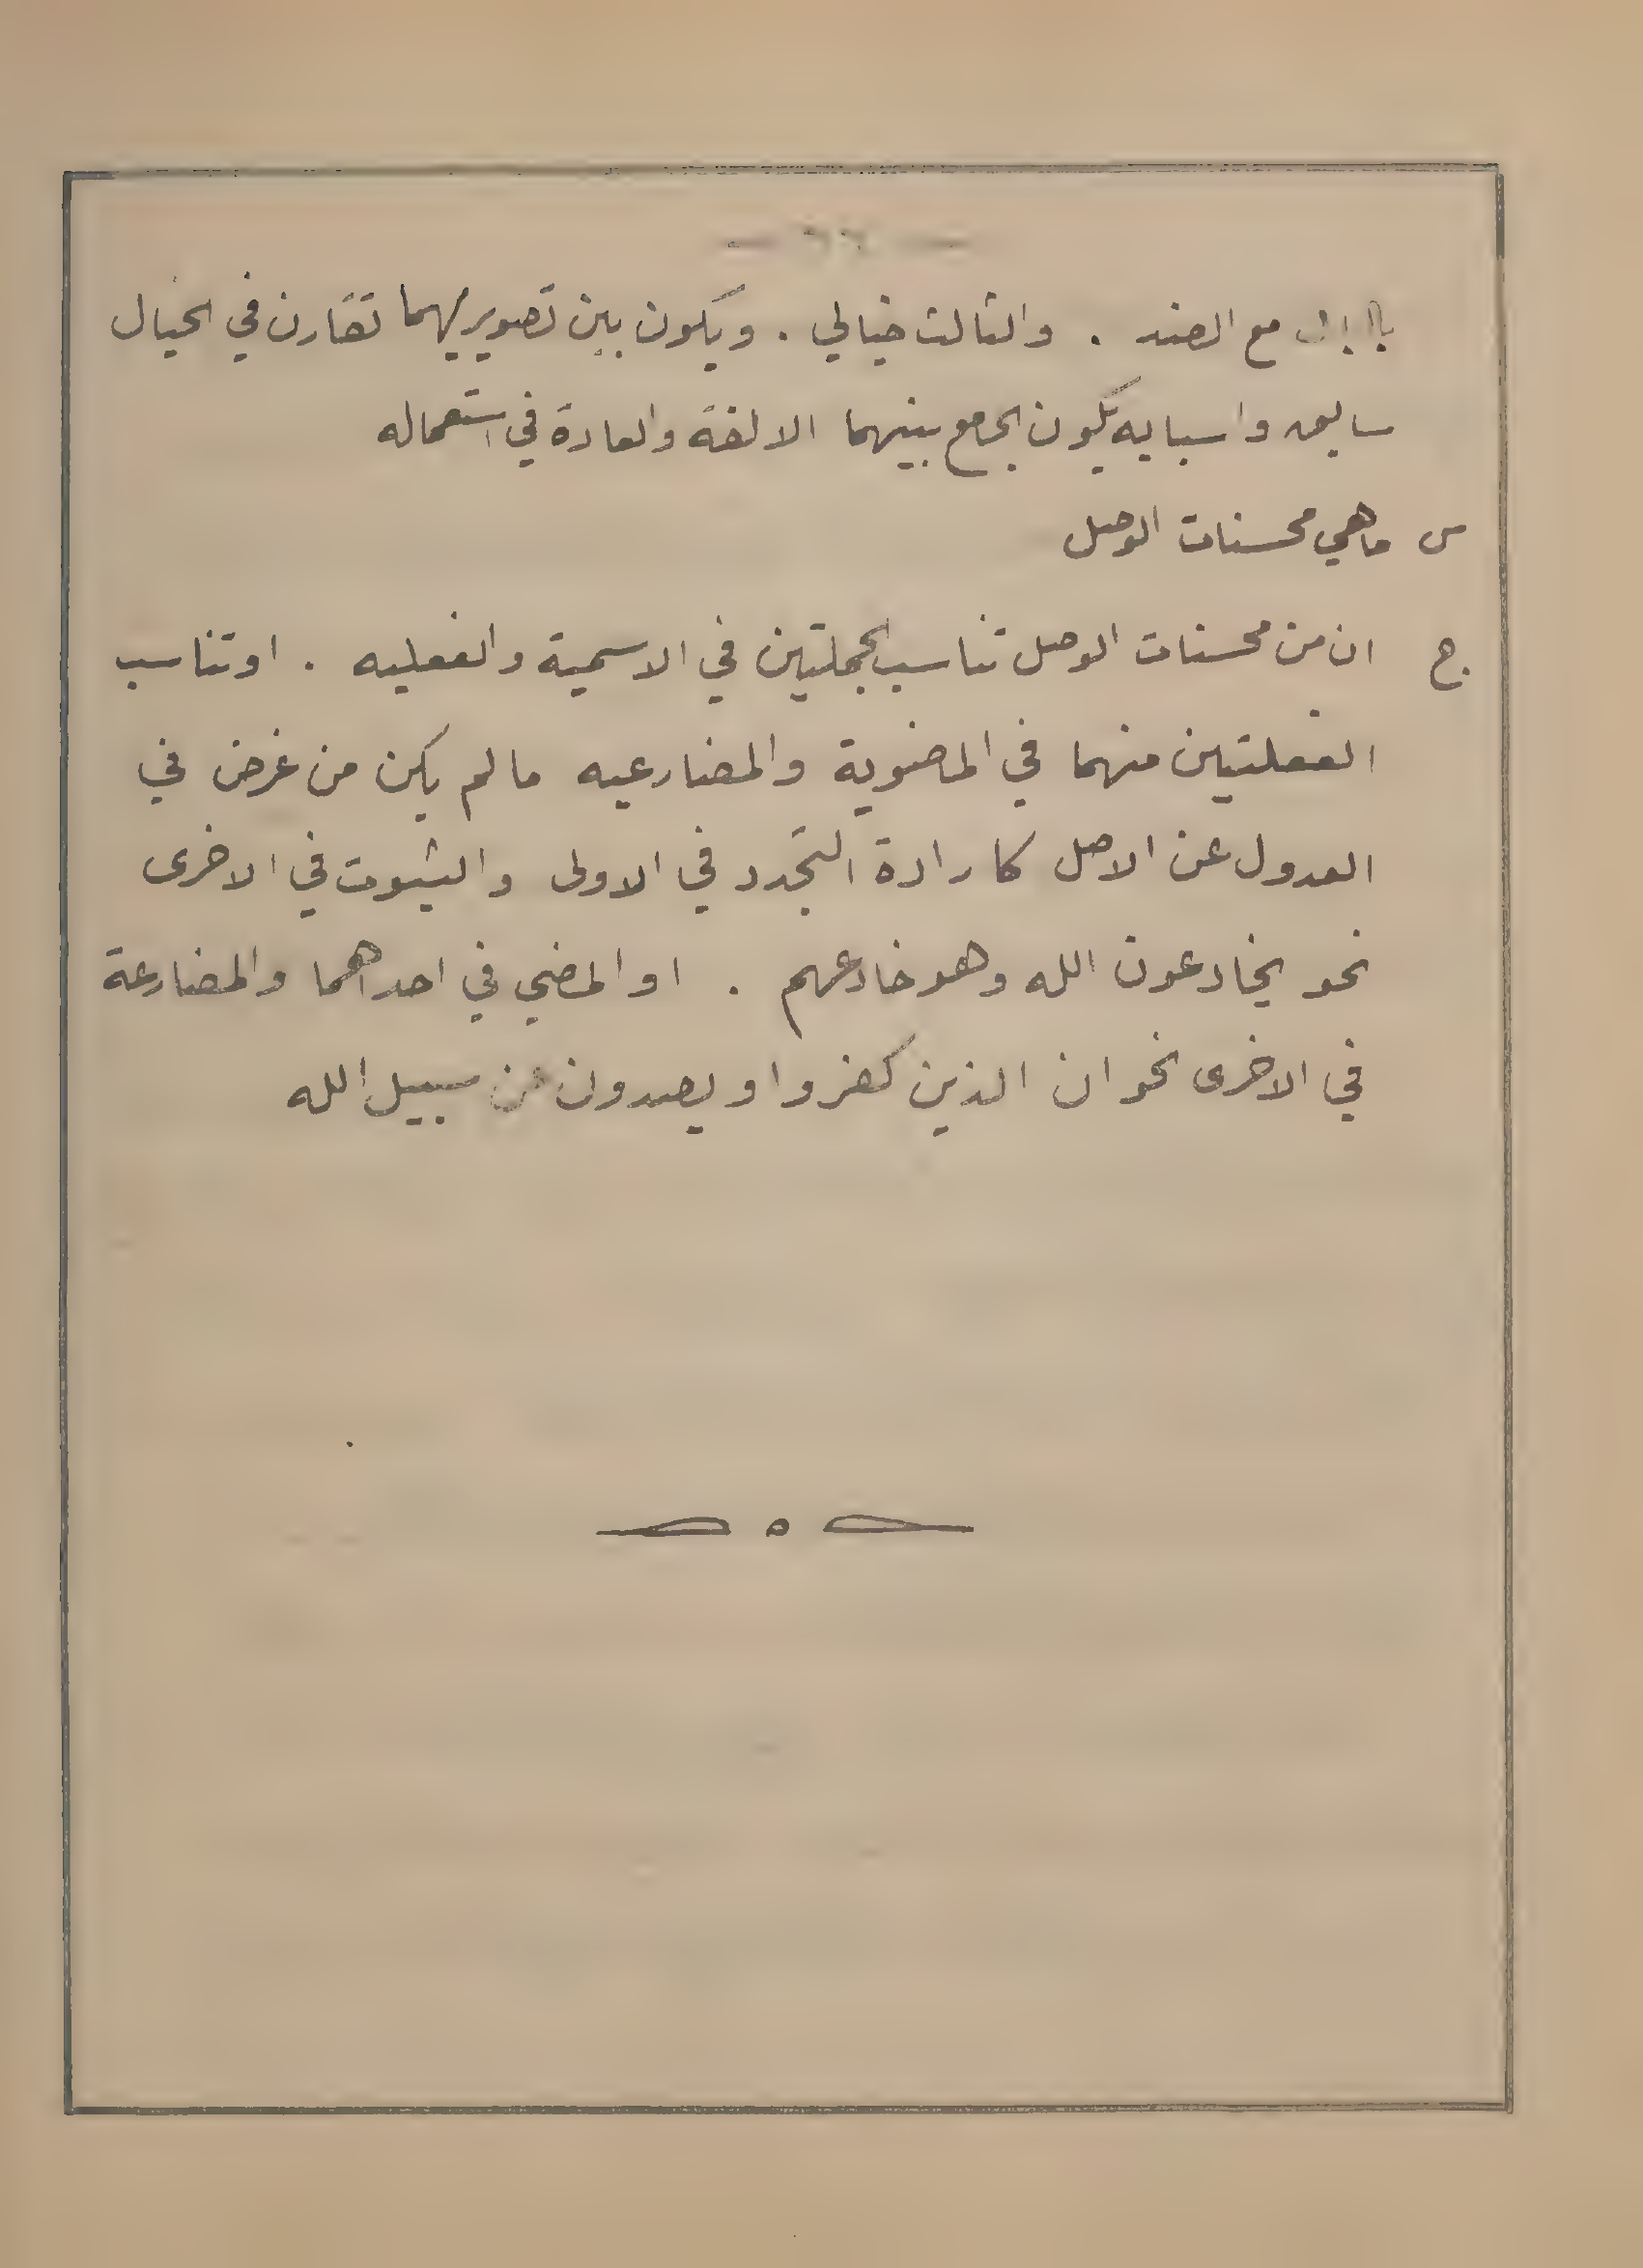 — ٦٦ —
مع الضد . والثالث خيالي . ويكون بين تصويريهما تقارن في الخيال
سابق واسبابه يكون الجامع بينهما الالفة والعادة في استعماله
س ماهي محسنات الوصل
ج ان من محسنات الوصل تناسب الجملتين في الاسمية والفعليه . او تناسب
الفعلتين منهما في الماضوية والمضارعيه مالم يكن من غرض في
العدول عن الاصل كارادة التجدد في الاولى والثبوت في الاخرى
نحو يخادعون الله وهو خادعهم . او المضي في احداهما والمضارعة
في الاخرى نحو ان الذين كفروا ويصدون عن سبيل الله